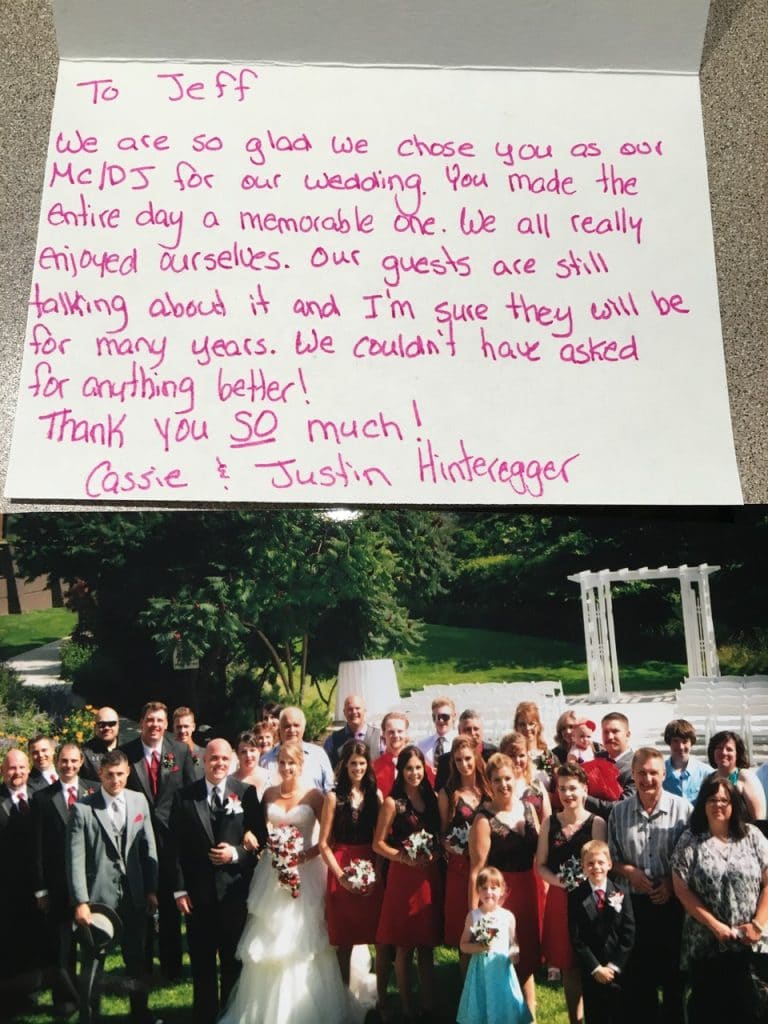 To Jeff
We are so glad we chose you as our
MC/DJ for our wedding. You made the
entire day a memorable one. We all really
enjoyed ourselves. Our guests are still
talking about it and I'm sure they will be
for many years. We couldn't have asked
for anything better!
Thank you SO much!
Cassie & Justin Hinteregger